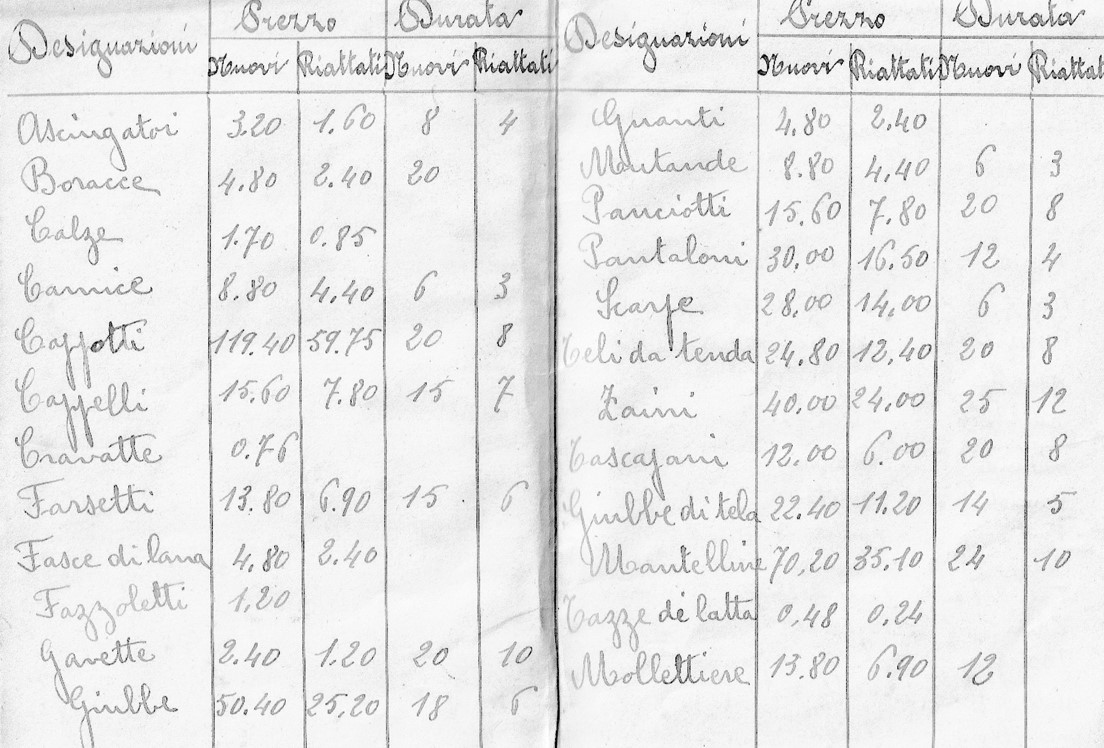 Designazioni Prezzo Durata
Nuovi Riattati Nuovi Riattati
Asciugatoi 3.20 1.60 8 4
Boracce 4.80 2.40 20
Calze 1.70 0.85
Camice 8.80 4.40 6 3
Cappotti 119.40 59.75 20 8
Cappelli 15.60 7.80 15 7
Cravatte 0.76
Farsetti 13.80 6.90 15 6
Fasce di lana 4.80 2.40
Fazzoletti 1.20
Gavette 2.40 1.20 20 10
Giubbe 50.40 25.20 18 6
Designazioni Prezzo Durata
Nuovi Riattati Nuovi Riattati
Guanti 4.80 2.40
Mutande 8.80 4.40 6 3
Panciotti 15.60 7.80 20 8
Pantaloni 30.00 16.50 12 4
Scarpe 28.00 14.00 6 3
Teli da tenda 24.80 12.40 20 8
Zaini 40.00 24.00 25 12
Tascapani 12.00 6.00 20 8
Giubbe di tela 22.40 11.20 14 5
Mantelline 70,20 35.10 24 10
Tazze dé latta 0,48 0.24
Mollettiere 13.80 6.90 12